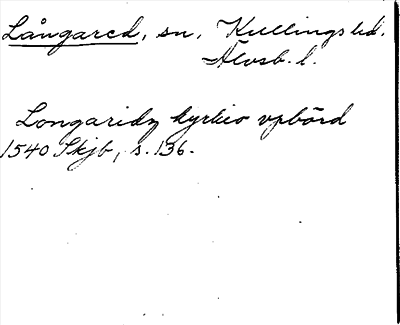 Långared, sn, Kullings hd.
Älvsb. l.
Longaridz kyrkio vpbörd
1540 Skjb, s. 136.